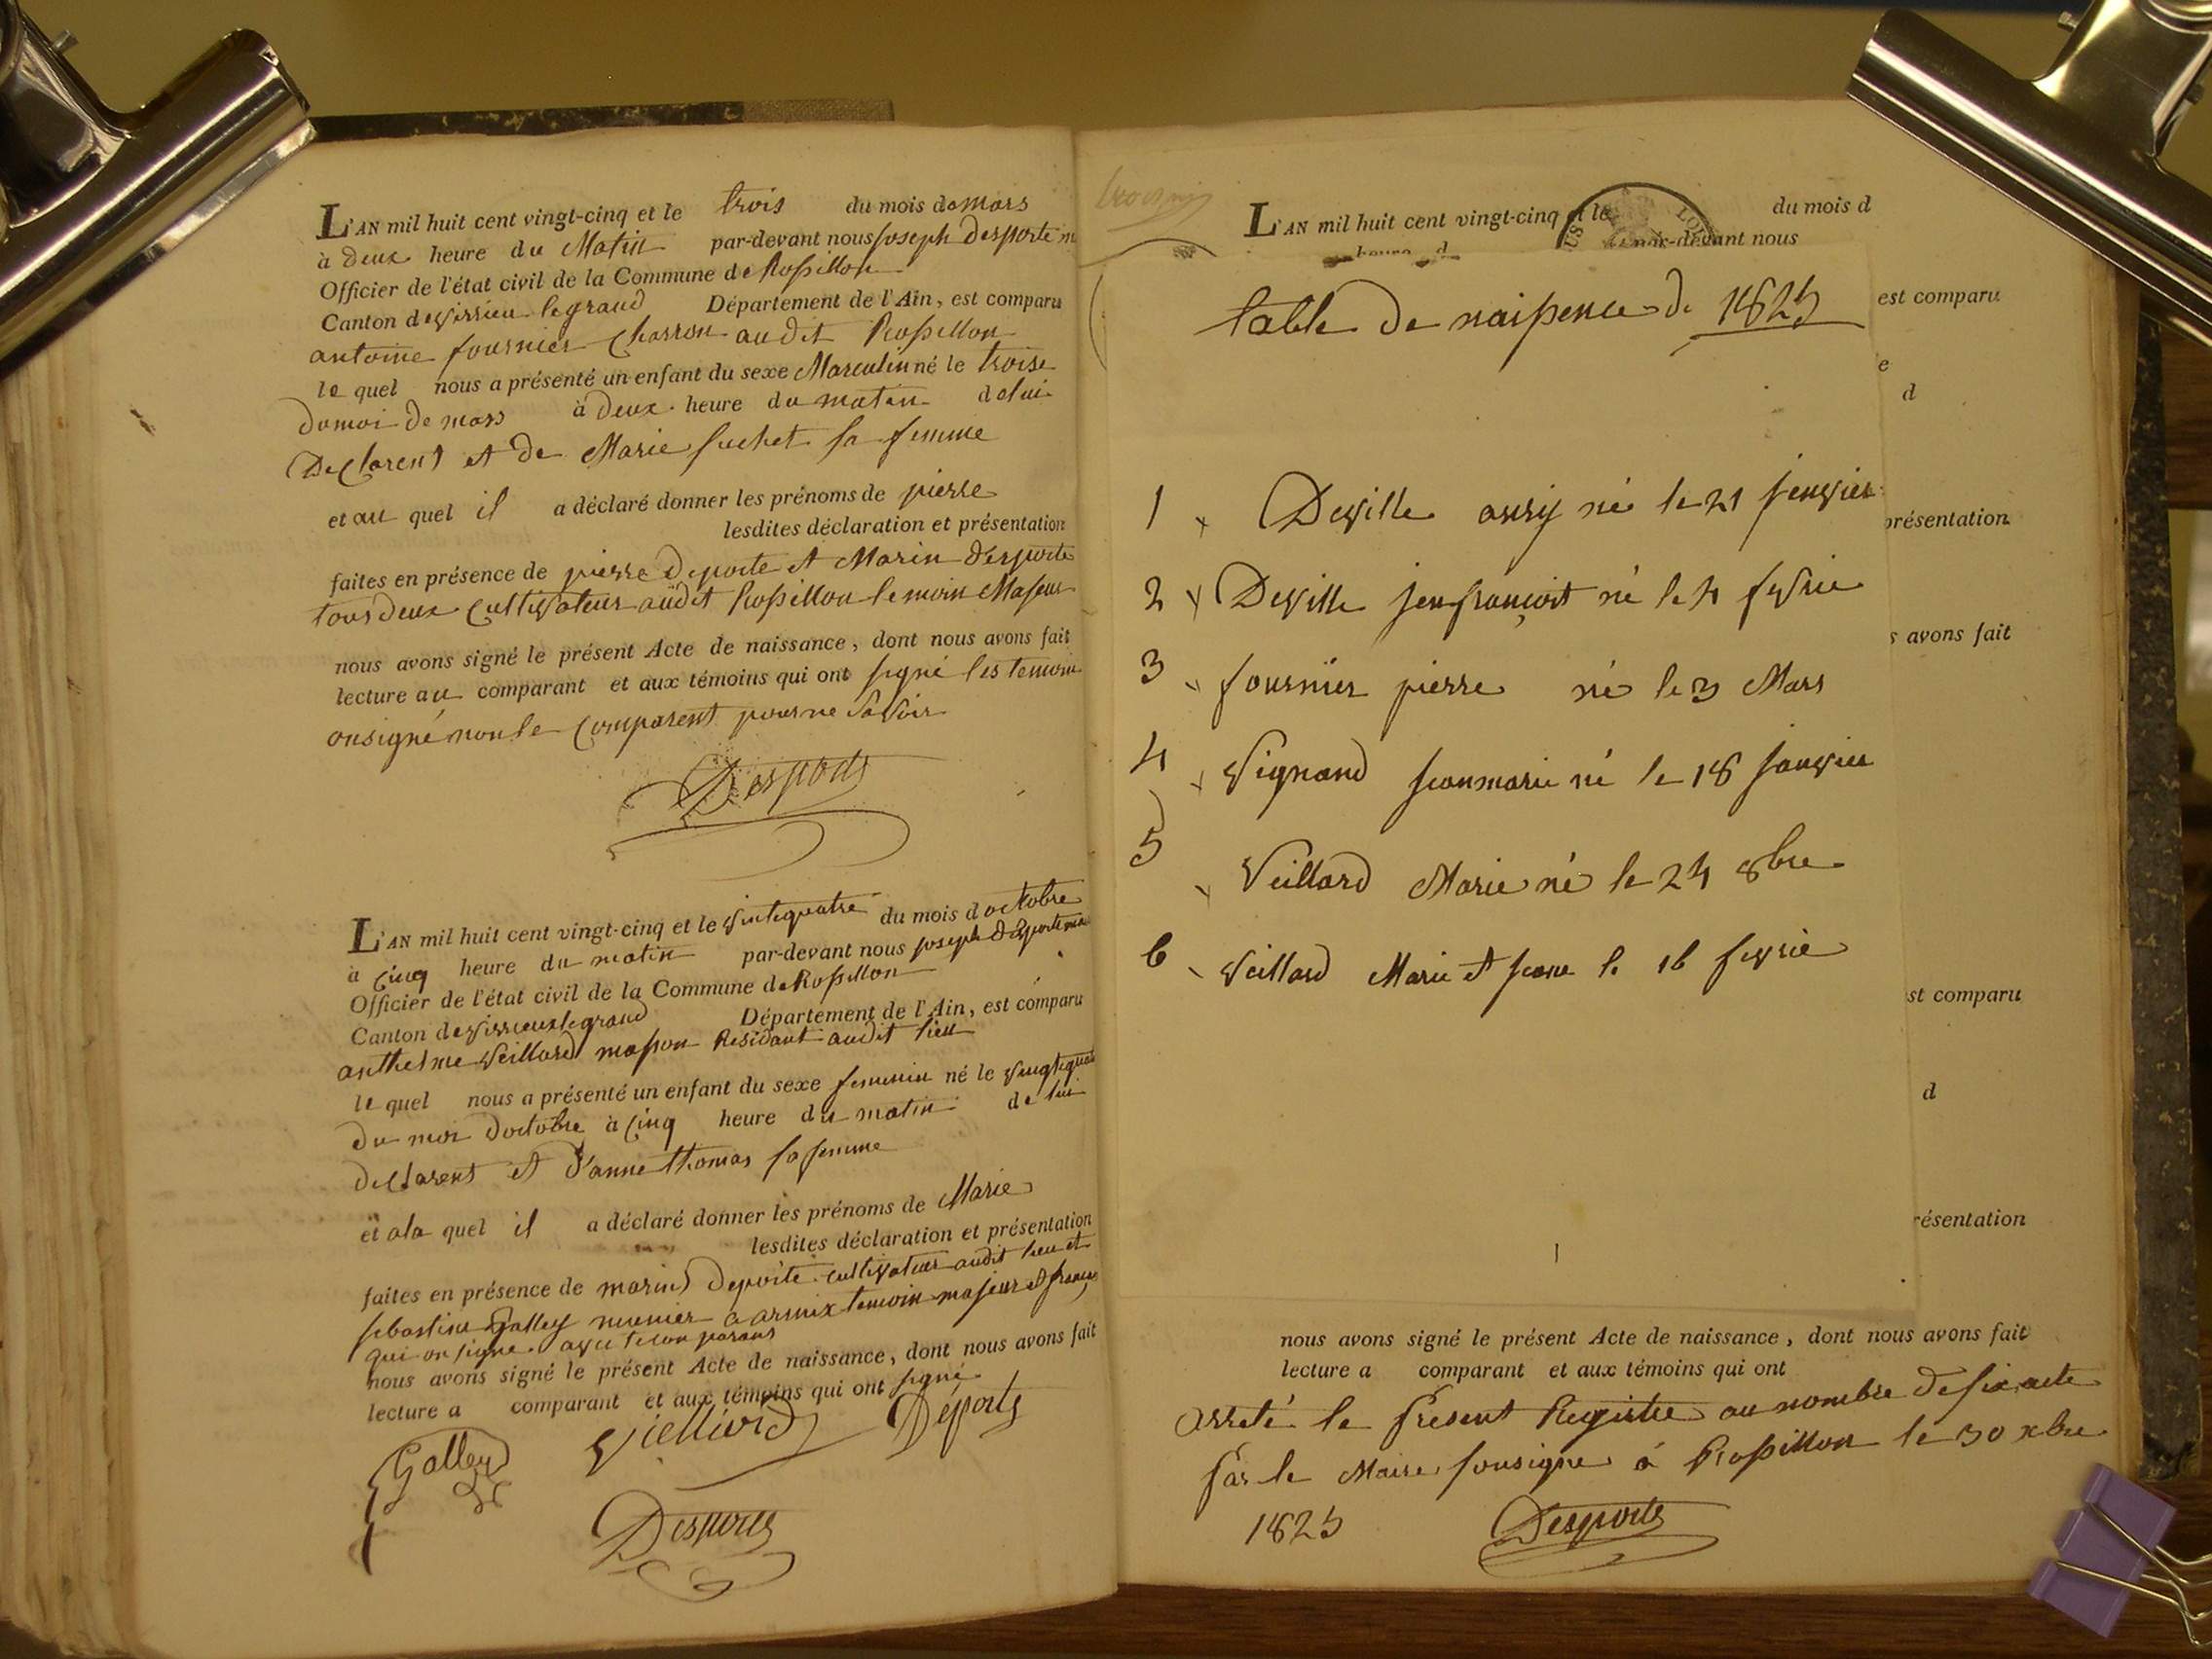 L'AN mil huit cent vingt-cinq et le trois du mois de mars
à deux heure du Matin par-devant nous joseph Desporte m
Officier de l'état civil de la Commune de Rossillon
Canton de virrieu le grand Département de l'Ain, est comparu
antoine fournier Charron audit Rossillon
le quel nous a présenté un enfant du sexe Masculin né le troise
du moi de mars à deux heure du matin de lui
Declarent et de Marie suchet sa femme
et au quel il a déclaré donner les prénoms de pierre
lesdites déclaration et présentation
faites en présence de pierre deporte et Marin desporte
tous deux cultivateur audit Rossillon temoin Majeur
nous avons signé le présent Acte de naissance, dont nous avons fait
lecture au comparant et aux témoins qui ont signé les temoin
on signé non le comparent pour ne savoir
Desports
L'AN mil huit cent vingt-cinq et le vintequatre du mois doctobre
à cinq heure du matin par-devant nous joseph desporte
Officier de l'état civil de la Commune de Rossillon
Canton de virrieux le grand Département de l'Ain, est comparu
anthelme Veillard masson Residant audit lieu
le quel nous a présenté un enfant du sexe feminin né le
du moi doctobre à cinq heure du matin de lui
declarent et d'anne thomas sa femme
et ala quel il a déclaré donner les prénoms de Marie
lesdites déclaration et présentation
faites en présence de marin deporte cultivateur audit lieu et
sebastien Galley munier a armix temoin majeur et
qui on signe avec le conparans
nous avons signé le présent Acte de naissance, dont nous avons fait
lecture a comparant et aux témoins qui ont signé
Galley Déports
Desports
L'AN mil huit cent vingt-cinq et le du mois d
par-devant nous
table de naissence de 1825
est comparu
e
d
1 x Deville anry né le 21 jenvier
présentation
2 x Deville jenfrançoit né le 4 fevrie
s avons fait
3 fournier pierre né le 3 Mars
4 x Vignand jeanmarie né le 18 janvier
5 Veillard Marie né le 24 8bre
6 Veillard Marie et jeane le 16 fevrie
est comparu
d
résentation
nous avons signé le présent Acte de naissance, dont nous avons fait
lecture a comparant et aux témoins qui ont
arreté le présent Registre au nombre de six acte
par le Maire sousigne à Rossillon le 30 xbre
1825 Desports